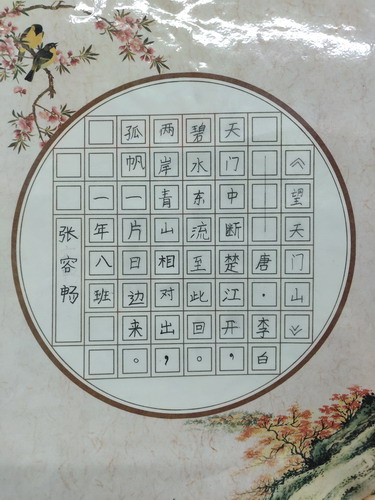 《望天门山》
——唐·李白
天门中断楚江开，
碧水东流至此回。
两岸青山相对出，
孤帆一片日边来。
一年八班
张容畅